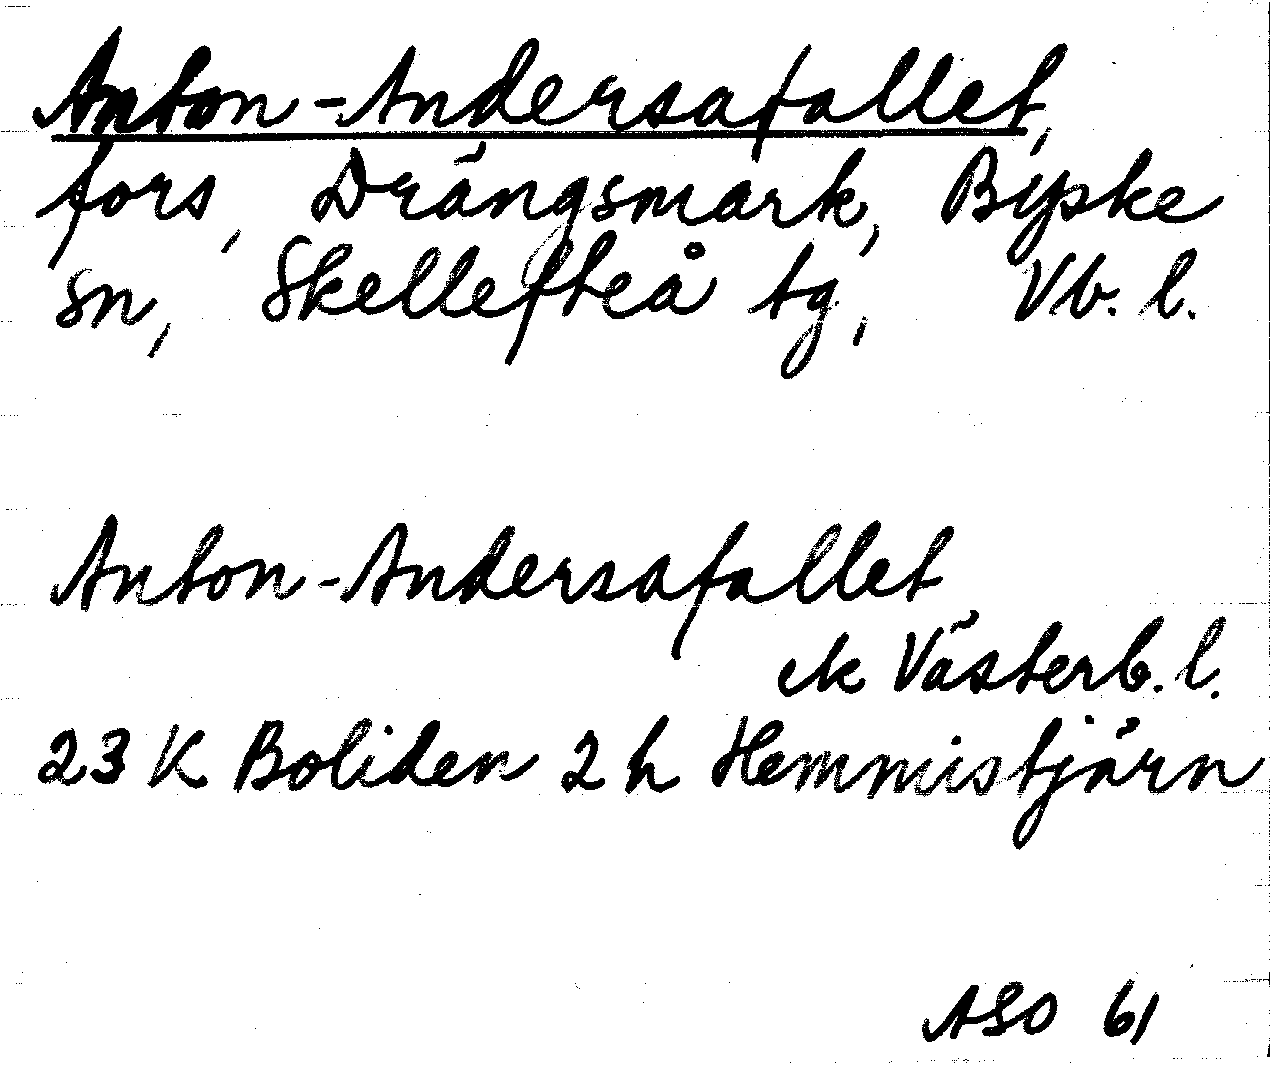 Anton-Andersafallet,
fors, Drängsmark, Byske
sn, Skellefteå tg, Vb. l.
Anton-Andersafallet
ek Västerb. l.
23 K Boliden 2 h Hemmistjärn
ASO 61